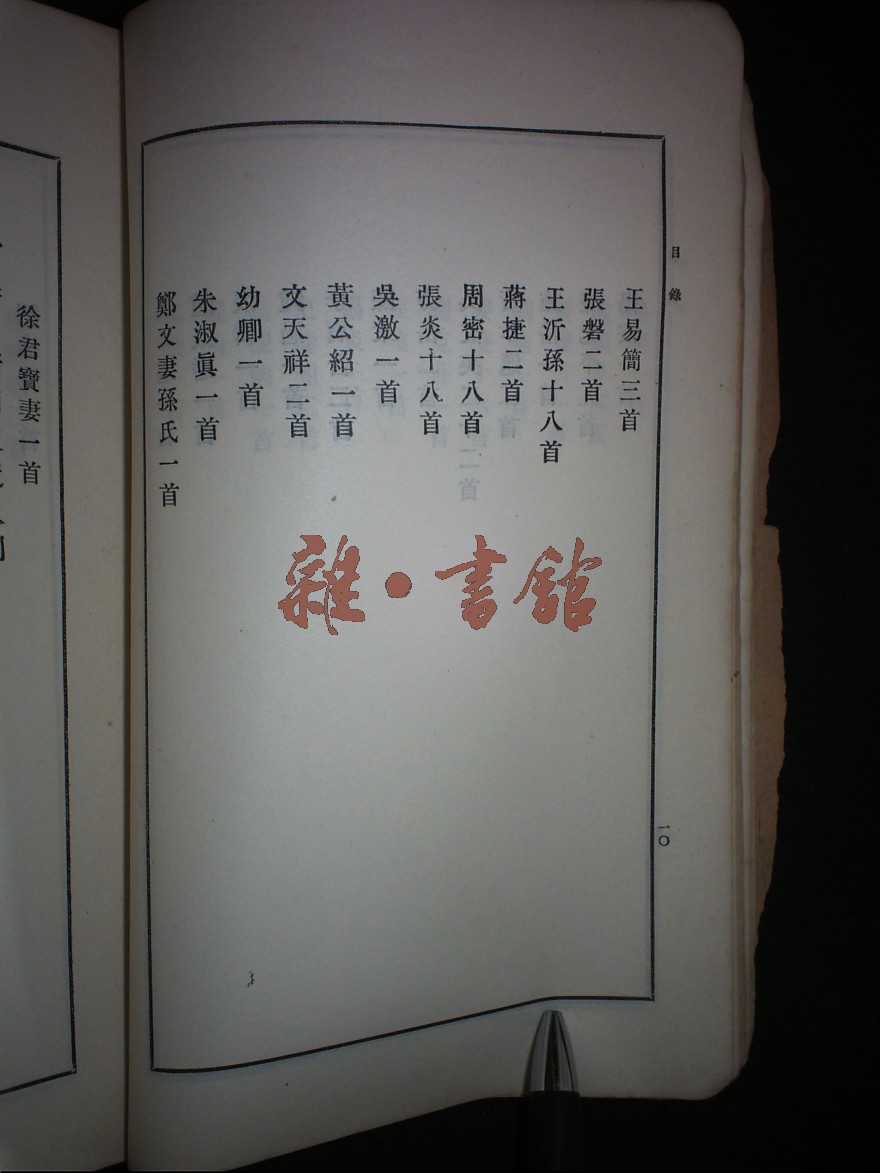 目錄
王易簡三首
張磐二首
王沂孫十八首
蔣捷二首
周密十八首
張炎十八首
吳激一首
黃公紹一首
文天祥二首
幼卿一首
朱淑眞一首
鄭文妻孫氏一首
一〇
徐君寶妻一首
雜·書館